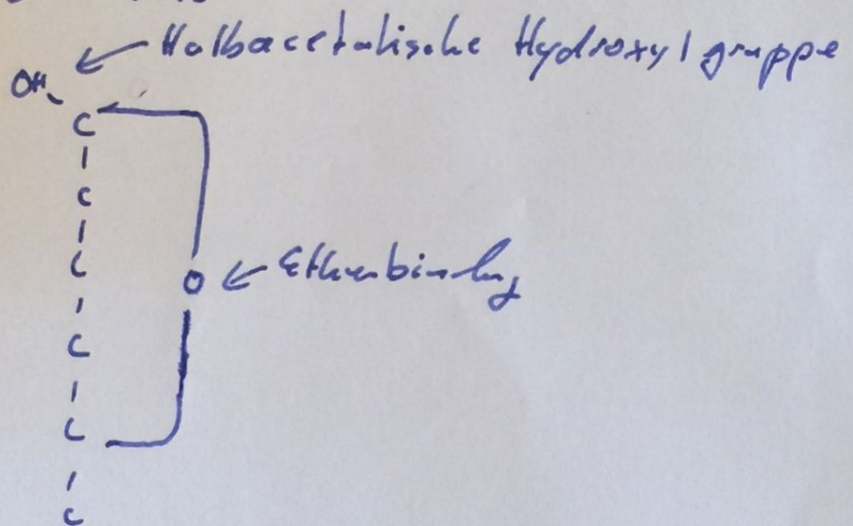 Halbacetalische Hydroxylgruppe
OH
C
C
C
C
O
Etherbindung
C
C